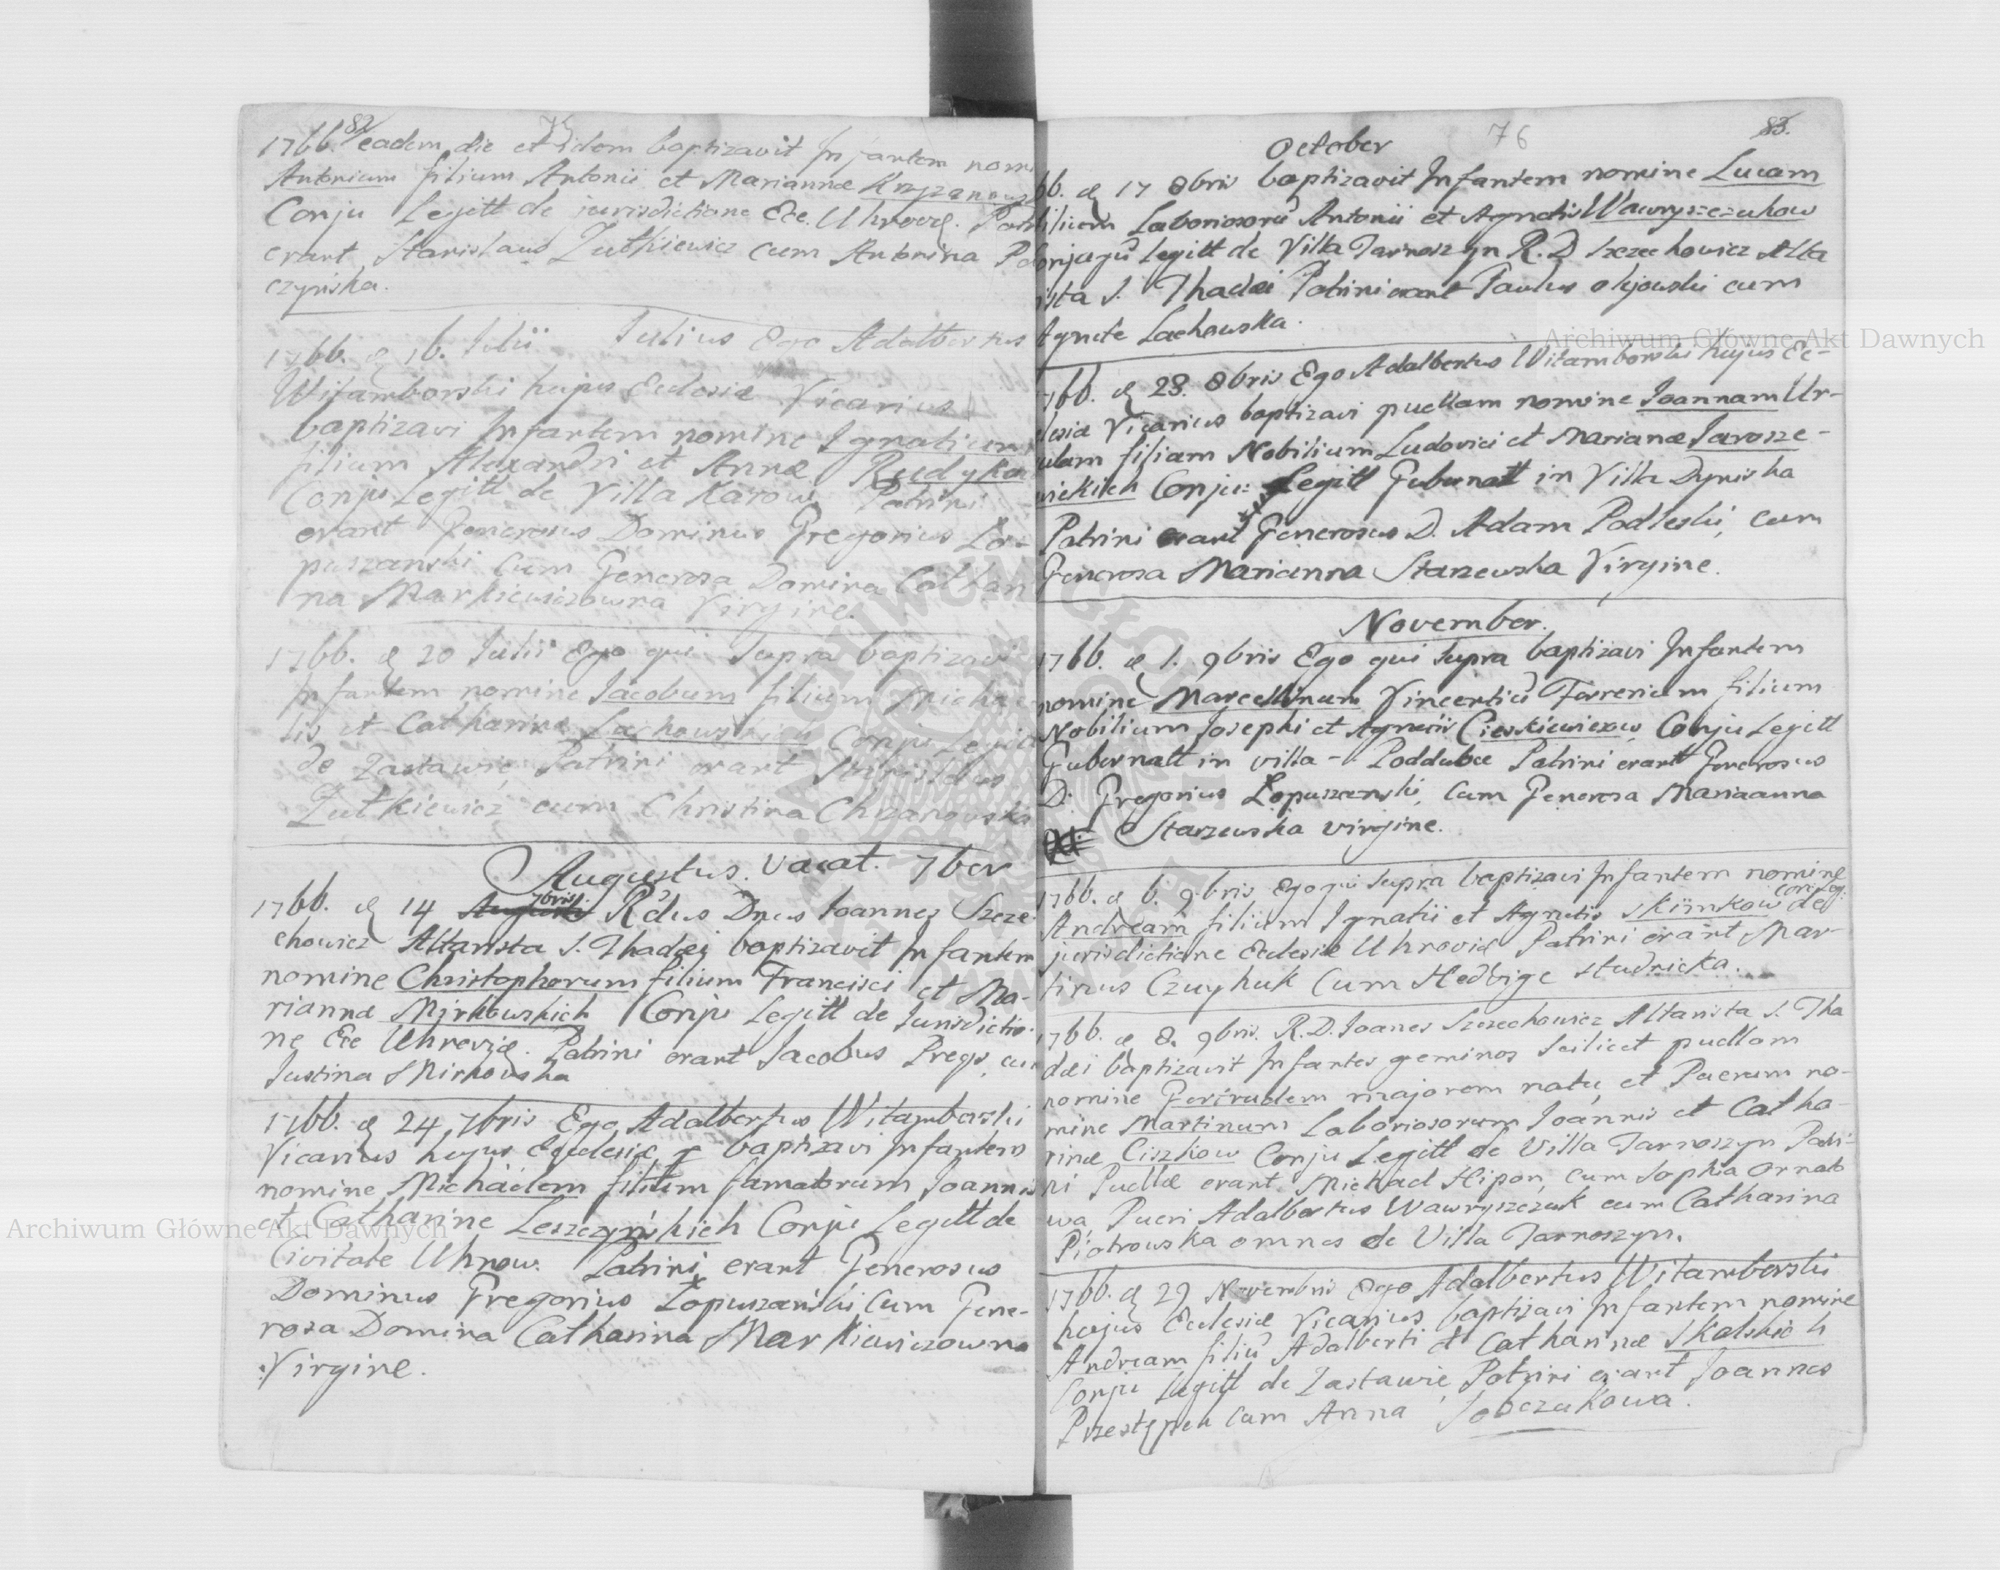 82 75
1766. eadem die et idem baptizavit Infantem nomi
Antonium filium Antonii et Mariannæ Krzyzanows
Conju Legitt de jurisdictione Ecc. Uhrovię. Patr
erant Stanislaus Zutkiewicz cum Antonina Pa
czynska.
Julius
1766. d 16. Julii Ego Adalbertus
Witamborski hujus Ecclesiæ Vicarius
baptizavi Infantem nomine Ignatium
filium Alexandri et Annæ Rudyko
Conju Legitt de Villa Karow Patrini
erant Generosus Dominus Gregorius Lo-
puszanski Cum Generosa Domina Cathari
na Markiewiczowna Virgine.
1766. d 20 Julii Ego qui supra baptizavi
Infantem nomine Jacobum filium Micha
lis et Catharinæ Lachowskich Conju Legitt
de Zastawie Patrini erant Stanislaus
Zutkiewicz cum Christina Chrzanowska
Augustus. vacat. 7ber
1766. d 14 7bris Rdus Dnus Ioannes Szcze
chowicz Altarista S. Thadei baptizavit Infantem
nomine Christophorum filium Francisci et Ma-
riannæ Mirkowskich Conju Legitt de Iurisdictio
ne Ecc Uhrovię. Patrini erant Iacobus Prego, cum
Iustina Mirkowska
1766. d 24 7bris Ego Adalbertus Witamborski
Vicarius hujus Ecclesiæ baptizavi Infantem
nomine Michaelem filium famatorum Joannis
et Catharinæ Leszczynskich Conju Legitt de
Civitate Uhnow. Patrini erant Generosus
Dominus Gregorius Łopuszanski Cum Gene-
rosa Domina Catharina Markiewiczowna
Virgine.
76 83.
October
66. d 17 8bris baptizavit Infantem nomine Lucam
filium Laboriosorũ Antonii et Agnetis Wawryszczukow
Conjugũ Legitt de Villa Tarnoszyn R. D. Szczechowicz Alta
ista S. Thadei Patrini erant Paulus Olijowski cum
Agnete Lachowska.
1766. d 28. 8bris Ego Adalbertus Witamborski hujus Ec-
clesiæ Vicarius baptizavi puellam nomine Ioannam Ur-
sulam filiam Nobilium Ludovici et Marianæ Iarosze-
wickich Conju: Legitt Gubernatt in Villa Dyniska
Patrini erant Generosus D. Adam Podleski, cum
Generosa Marianna Starzewska Virgine.
November.
1766. d 1. 9bris Ego qui supra baptizavi Infantem
nomine Marcellinum Vincentiũ Ferrerium filium
Nobilium Josephi et Agnetis Cieskiewiczow Conju Legitt
Gubernatt in villa - Poddubce Patrini erant Generosus
D. Gregorius Łopuszanski, Cum Generosa Mariaanna
Starzewska virgine.
1766. d 6. 9bris Ego qui supra baptizavi Infantem nomine
Andream filium Ignatii et Agnetis Skimkow Conj Leg: de
jurisdictione Ecclesiæ Uhroviæ Patrini erant Mar-
tinus Czuyhuk Cum Hedvige Studnicka.
1766. d 8. 9bris. R. D. Ioanes Szczechowicz Altarista S. Tha
dæi baptizavit Infantes geminos scilicet puellam
nomine Gertrudem majorem natu, et Puerum no-
mine Martinum Laboriosorum Ioannis et Catha-
rinæ Ciszkow Conju Legitt de Villa Tarnoszyn Patri-
ni Puellæ erant Michael Hipon, cum Sophia Ornato
wa, Pueri Adalbertus Wawryszczuk cum Catharina
Piotrowska omnes de Villa Tarnoszyn.
1766. d 29 Novembris Ego Adalbertus Witamborski
hujus Ecclesiæ Vicarius baptizavi Infantem nomine
Andream filiũ Adalberti et Catharinæ Skalskich
Conju Legitt de Zastawie Patrini erant Joannes
Przestępen Cum Anna Sobczukowa.
Archiwum Główne Akt Dawnych
Archiwum Główne Akt Dawnych